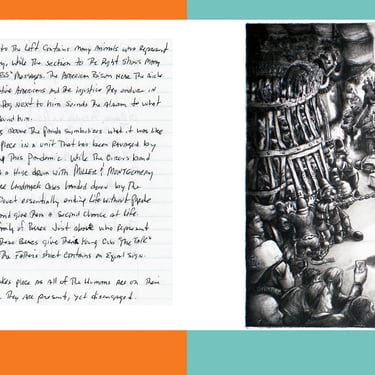 to The Left. Contains Many Animals who Represent
while The section To The Right Shows Many
Messages. The American Bison
Americans and The Injustice They endure in
Dog Next to him Sounds The Alarm To what
him.
above The Panda symbolizes what it was like
place in a unit That has been Ravaged by
This Pandemic. While The Circus band
a Huge Drum with Miller & Montgomery
Landmark Cases handed down by The
Court essentially ending Life without Parole
and give Them a Second Chance at Life.
of Bears Just above who represent
These Bears give Their Young Cub "The Talk"
The Father's Shirt Contains an Equal Sign.
place as all of The Humans are on Their
They are present, yet disengaged.